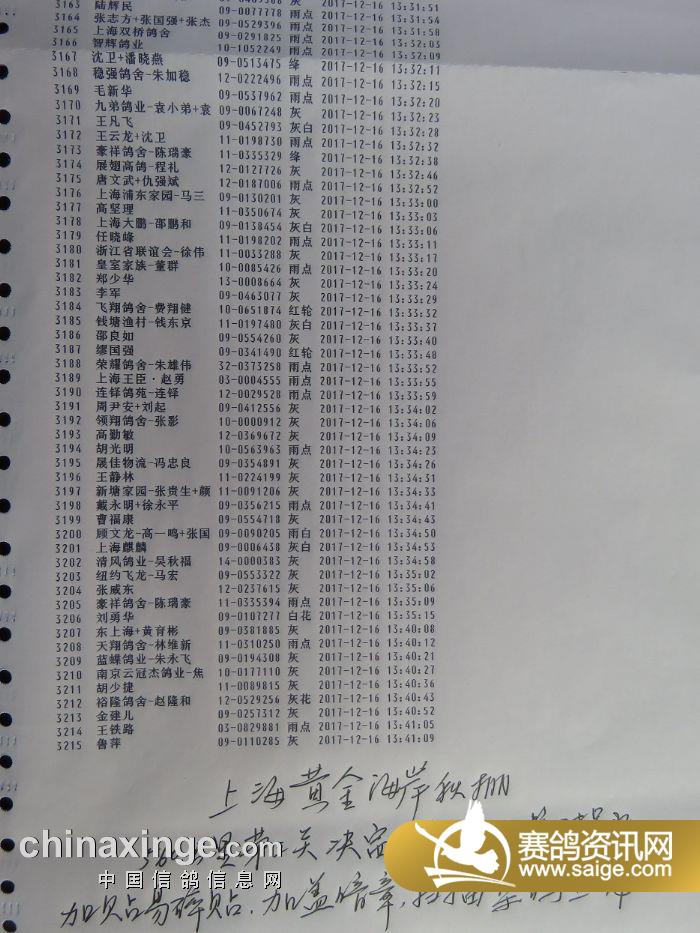 3163 陆辉民 09-0077778 雨点 2017-12-16 13:31:51
3164 张志方+张国强+张杰 09-0529396 雨点 2017-12-16 13:31:58
3165 上海双桥鸽舍 09-0291825 雨点 2017-12-16 13:32:03
3166 智辉鸽业 10-1052249 雨点 2017-12-16 13:32:09
3167 沈卫+潘晓燕 09-0513475 绛 2017-12-16 13:32:11
3168 稳强鸽舍-朱加稳 12-0222496 雨点 2017-12-16 13:32:15
3169 毛新华 09-0537962 雨点 2017-12-16 13:32:20
3170 九弟鸽业-袁小弟+袁 09-0067248 灰 2017-12-16 13:32:23
3171 王凡飞 09-0452793 灰白 2017-12-16 13:32:28
3172 王云龙+沈卫 11-0198730 雨点 2017-12-16 13:32:32
3173 豪祥鸽舍-陈瑞豪 11-0335329 绛 2017-12-16 13:32:38
3174 展翅高鸽-程礼 12-0127726 灰 2017-12-16 13:32:46
3175 唐文武+仇强斌 12-0187006 雨点 2017-12-16 13:32:52
3176 上海浦东家园-马三 09-0130201 灰 2017-12-16 13:33:00
3177 高坚理 11-0350674 灰 2017-12-16 13:33:03
3178 上海大鹏-邵鹏和 09-0138454 灰白 2017-12-16 13:33:06
3179 任晓峰 11-0198202 雨点 2017-12-16 13:33:11
3180 浙江省联谊会-徐伟 11-0033288 灰 2017-12-16 13:33:17
3181 皇室家族-董群 10-0085426 雨点 2017-12-16 13:33:20
3182 郑少华 13-0008664 灰 2017-12-16 13:33:24
3183 李军 09-0463077 灰 2017-12-16 13:33:29
3184 飞翔鸽舍-费翔健 10-0651874 红轮 2017-12-16 13:33:32
3185 钱塘渔村-钱东京 11-0197480 灰白 2017-12-16 13:33:37
3186 邵良如 09-0554260 灰 2017-12-16 13:33:40
3187 缪国强 09-0341490 红轮 2017-12-16 13:33:48
3188 荣耀鸽舍-朱雄伟 32-0373258 雨点 2017-12-16 13:33:52
3189 上海王臣·赵勇 03-0004555 雨点 2017-12-16 13:33:55
3190 连铎鸽苑-连铎 12-0029528 雨点 2017-12-16 13:33:59
3191 周尹安+刘起 09-0412556 灰 2017-12-16 13:34:02
3192 领翔鸽舍-张影 10-0000912 灰 2017-12-16 13:34:06
3193 高勤敏 12-0369672 灰 2017-12-16 13:34:09
3194 胡光明 10-0563963 雨点 2017-12-16 13:34:23
3195 晟佳物流-冯忠良 09-0354891 灰 2017-12-16 13:34:26
3196 王静林 11-0224199 灰 2017-12-16 13:34:31
3197 新塘家园-张贵生+颜 11-0091206 灰 2017-12-16 13:34:33
3198 戴永明+徐永平 09-0356215 雨点 2017-12-16 13:34:41
3199 曹福康 09-0554718 灰 2017-12-16 13:34:43
3200 顾文龙-高一鸣+张国 09-0090205 雨白 2017-12-16 13:34:50
3201 上海麒麟 09-0006438 灰白 2017-12-16 13:34:53
3202 清风鸽业-吴秋福 14-0000383 灰 2017-12-16 13:34:58
3203 纽约飞龙-马宏 09-0553322 灰 2017-12-16 13:35:02
3204 张威东 12-0237615 灰 2017-12-16 13:35:06
3205 豪祥鸽舍-陈瑞豪 11-0335394 雨点 2017-12-16 13:35:09
3206 刘勇华 09-0107277 白花 2017-12-16 13:35:15
3207 东上海+黄育彬 09-0381885 灰 2017-12-16 13:40:08
3208 天翔鸽舍-林维新 11-0310250 雨点 2017-12-16 13:40:12
3209 蓝蝶鸽业-朱永飞 09-0194308 灰 2017-12-16 13:40:21
3210 南京云冠杰鸽业-焦 10-0177110 灰 2017-12-16 13:40:27
3211 胡少捷 11-0089815 灰 2017-12-16 13:40:36
3212 裕隆鸽舍-赵隆和 12-0529256 灰花 2017-12-16 13:40:43
3213 金建儿 09-0257312 灰 2017-12-16 13:40:52
3214 王铁路 03-0829881 雨点 2017-12-16 13:41:05
3215 鲁萍 09-0110285 灰 2017-12-16 13:41:09
上海黄金海岸秋棚
关决定
加贴易碎贴.加盖暗章,
chinaxinge.com
中国信鸽信息网
赛鸽资讯网
www.saige.com